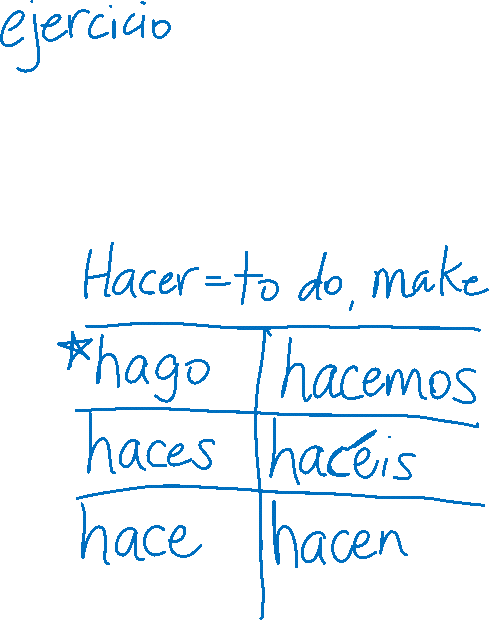 ejercicio
Hacer = to do, make
*hago hacemos
haces hacéis
hace hacen